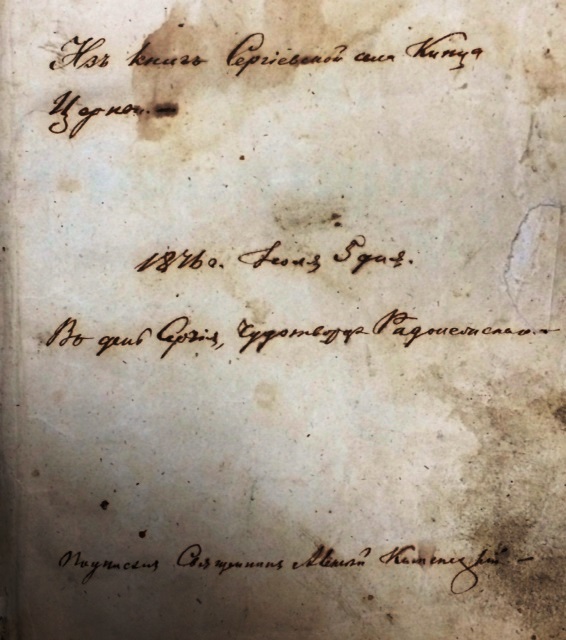 Изъ книгъ Сергіевской села Кипца
Церкви.
1876 г. Іюля 5 дня.
Въ день Сергія, Чудотворца Радонежскаго.
Подписалъ Священникъ Алексѣй